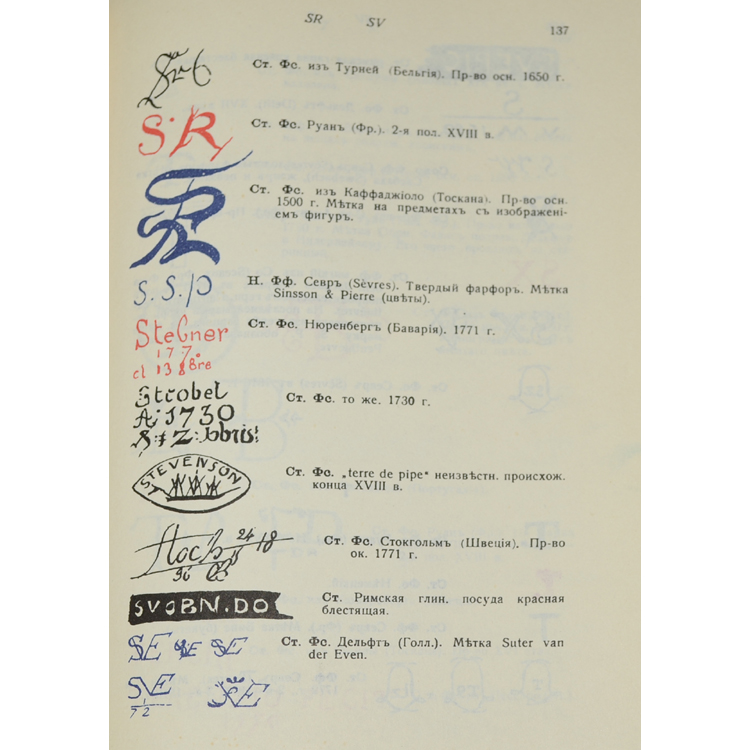 SR SV 137
Ст. Фс. изъ Турней (Бельгія). Пр-во осн. 1650 г.
S·R
Ст. Фс. Руанъ (Фр.). 2-я пол. XVIII в.
Ст. Фс. изъ Каффаджіоло (Тоскана). Пр-во осн.
1500 г. Мѣтка на предметахъ съ изображені-
емъ фигуръ.
S. S. p
Н. Фф. Севръ (Sèvres). Твердый фарфоръ. Мѣтка
Sinsson & Pierre (цвѣты).
Ст. Фс. Нюренбергъ (Баварія). 1771 г.
Strobel
A; 1730
Ст. Фс. то же. 1730 г.
STEVENSON
Ст. Фс. „terre de pipe“ неизвѣстн. происхож.
конца XVIII в.
24 18
Ст. Фс. Стокгольмъ (Швеція). Пр-во
ок. 1771 г.
Ст. Римская глин. посуда красная
блестящая.
SE SE
Ст. Фс. Дельфтъ (Голл.). Мѣтка Suter van
der Even.